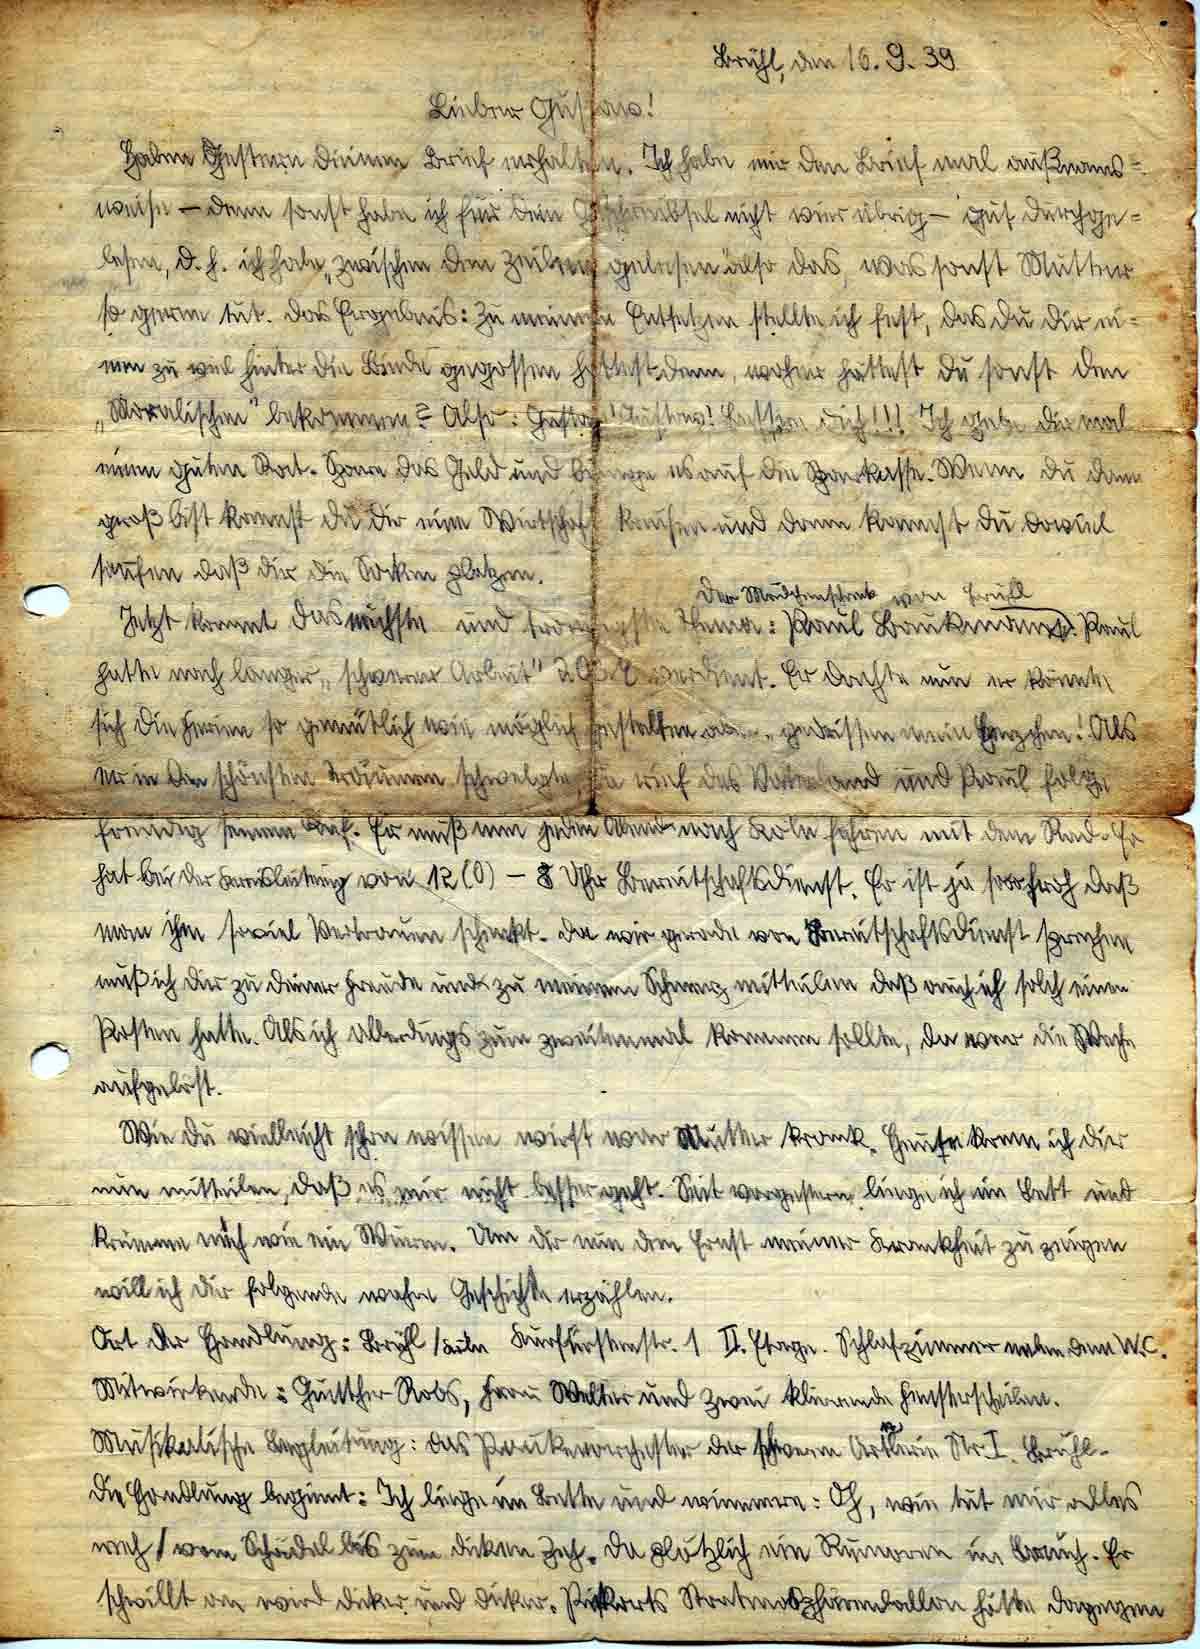 Brühl, den 16. 9. 39
Lieber Gustav!
Haben Gestern deinen Brief erhalten. Ich habe mir den Brief mal außnams=
weise – denn sonst habe ich für dein Geschreibsel nicht vier übrig – gut durchge=
lesen, d. h. ich habe „zwischen den Zeilen gelesen" also das, was sonst Mutter
so gerne tut. Das Ergebnis: Zu meinem Entsetzen stellte ich fest, das du dir ei=
nen zu viel hinter die Binde gegossen hattest denn, woher hättest du sonst den
„Moralischen" bekommen? Also: Gustav! Gustav! Bessere dich!!! Ich gebe dir mal
einen guten Rat. Spare das Geld und bringe es auf die Sparkasse. Wenn du dann
groß bist kannst du dir eine Wirtschaft kaufen und dann kannst du soviel
saufen daß dir die Socken platzen.
Der Mädchenschreck von Brühl
Jetzt kommt das nächste und traurigste Thema: Paul Baukmann. Paul
hatte nach langer „schwerer Arbeit" verdient. Er dachte nun er könnte
sich die Ferien so gemütlich wie möglich gestalten aber gedrissen mein Herzchen! Als
er in den schönsten Träumen schwelgte, da rief das Vaterland und Paul folgte
freudig seinem Ruf. Er muß nun jeden Abend nach Köln fahren mit dem Rad. Er
hat bei der Kreisleitung von 12 (0) – 8 Uhr Bereitschaftsdienst. Er ist ja so froh daß
man ihm soviel Vertrauen schenkt. Da wir gerade von Bereitschaftsdienst sprechen
muß ich dir zu deiner Freude und zu meinem Schmerz mitteilen daß auch ich solch einen
Posten hatte. Als ich allerdings zum zweitenmal kommen sollte, da war die Wache
aufgelöst.
Wie du vielleicht schon wissen wirst war Mutter krank. Heute kann ich dir
nun mitteilen, daß es mir nicht besser geht. Seit vorgestern liege ich im Bett und
krümme mich wie ein Wurm. Um dir nun den Ernst meiner Krankheit zu zeigen
will ich dir folgende wahre Geschichte erzählen.
Ort der Handlung: Brühl / Köln Kurfürstenstr. 1 II. Etage. Schlafzimmer neben dem W.C.
Mitwirkende: Günther Robs, Frau Welter und zwei klirrende Fensterscheiben.
Musikalische Begleitung: das Paukenorchester der schweren Artllerie Nr I. Brühl.
Die Handlung beginnt: Ich liege im Bette und wimmere: Oh, wie tut mir alles
weh / vom Schädel bis zum dicken Zeh. Da plötzlich ein Rumoren im Bauch. Er
schwillt an wird dicker und dicker. Pikkarts Stratmosphärenballon hätte dagegen